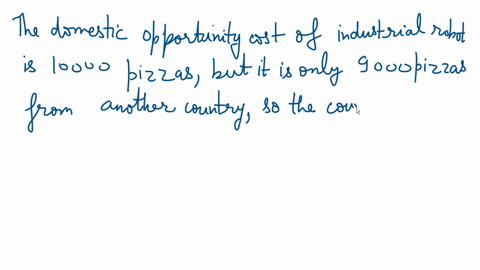 The domestic opportunity cost of industrial robot
is 10000 pizzas, but it is only 9000 pizzas
from another country, so the cou